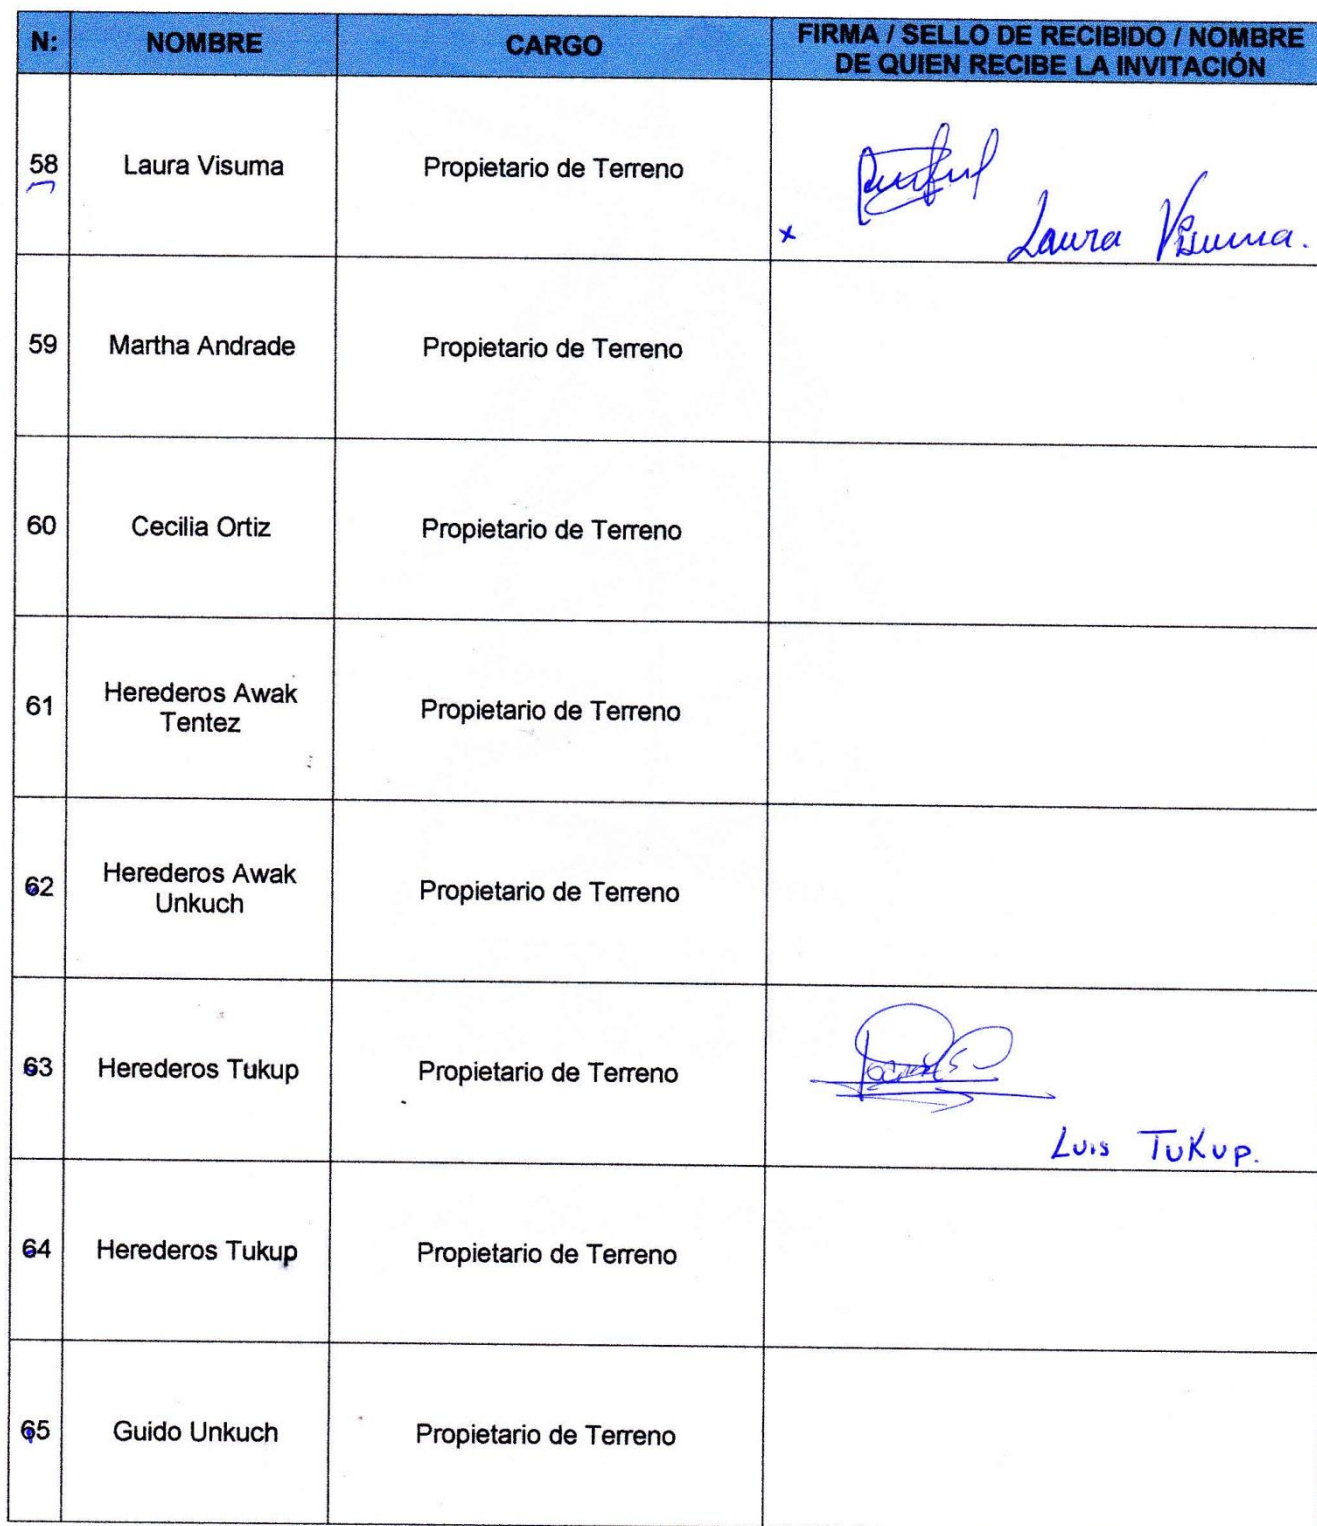 N: NOMBRE CARGO FIRMA / SELLO DE RECIBIDO / NOMBRE
DE QUIEN RECIBE LA INVITACIÓN
58 Laura Visuma Propietario de Terreno
x Laura Visuma.
59 Martha Andrade Propietario de Terreno
60 Cecilia Ortiz Propietario de Terreno
61 Herederos Awak
Tentez Propietario de Terreno
62 Herederos Awak
Unkuch Propietario de Terreno
63 Herederos Tukup Propietario de Terreno
Luis Tukup.
64 Herederos Tukup Propietario de Terreno
65 Guido Unkuch Propietario de Terreno